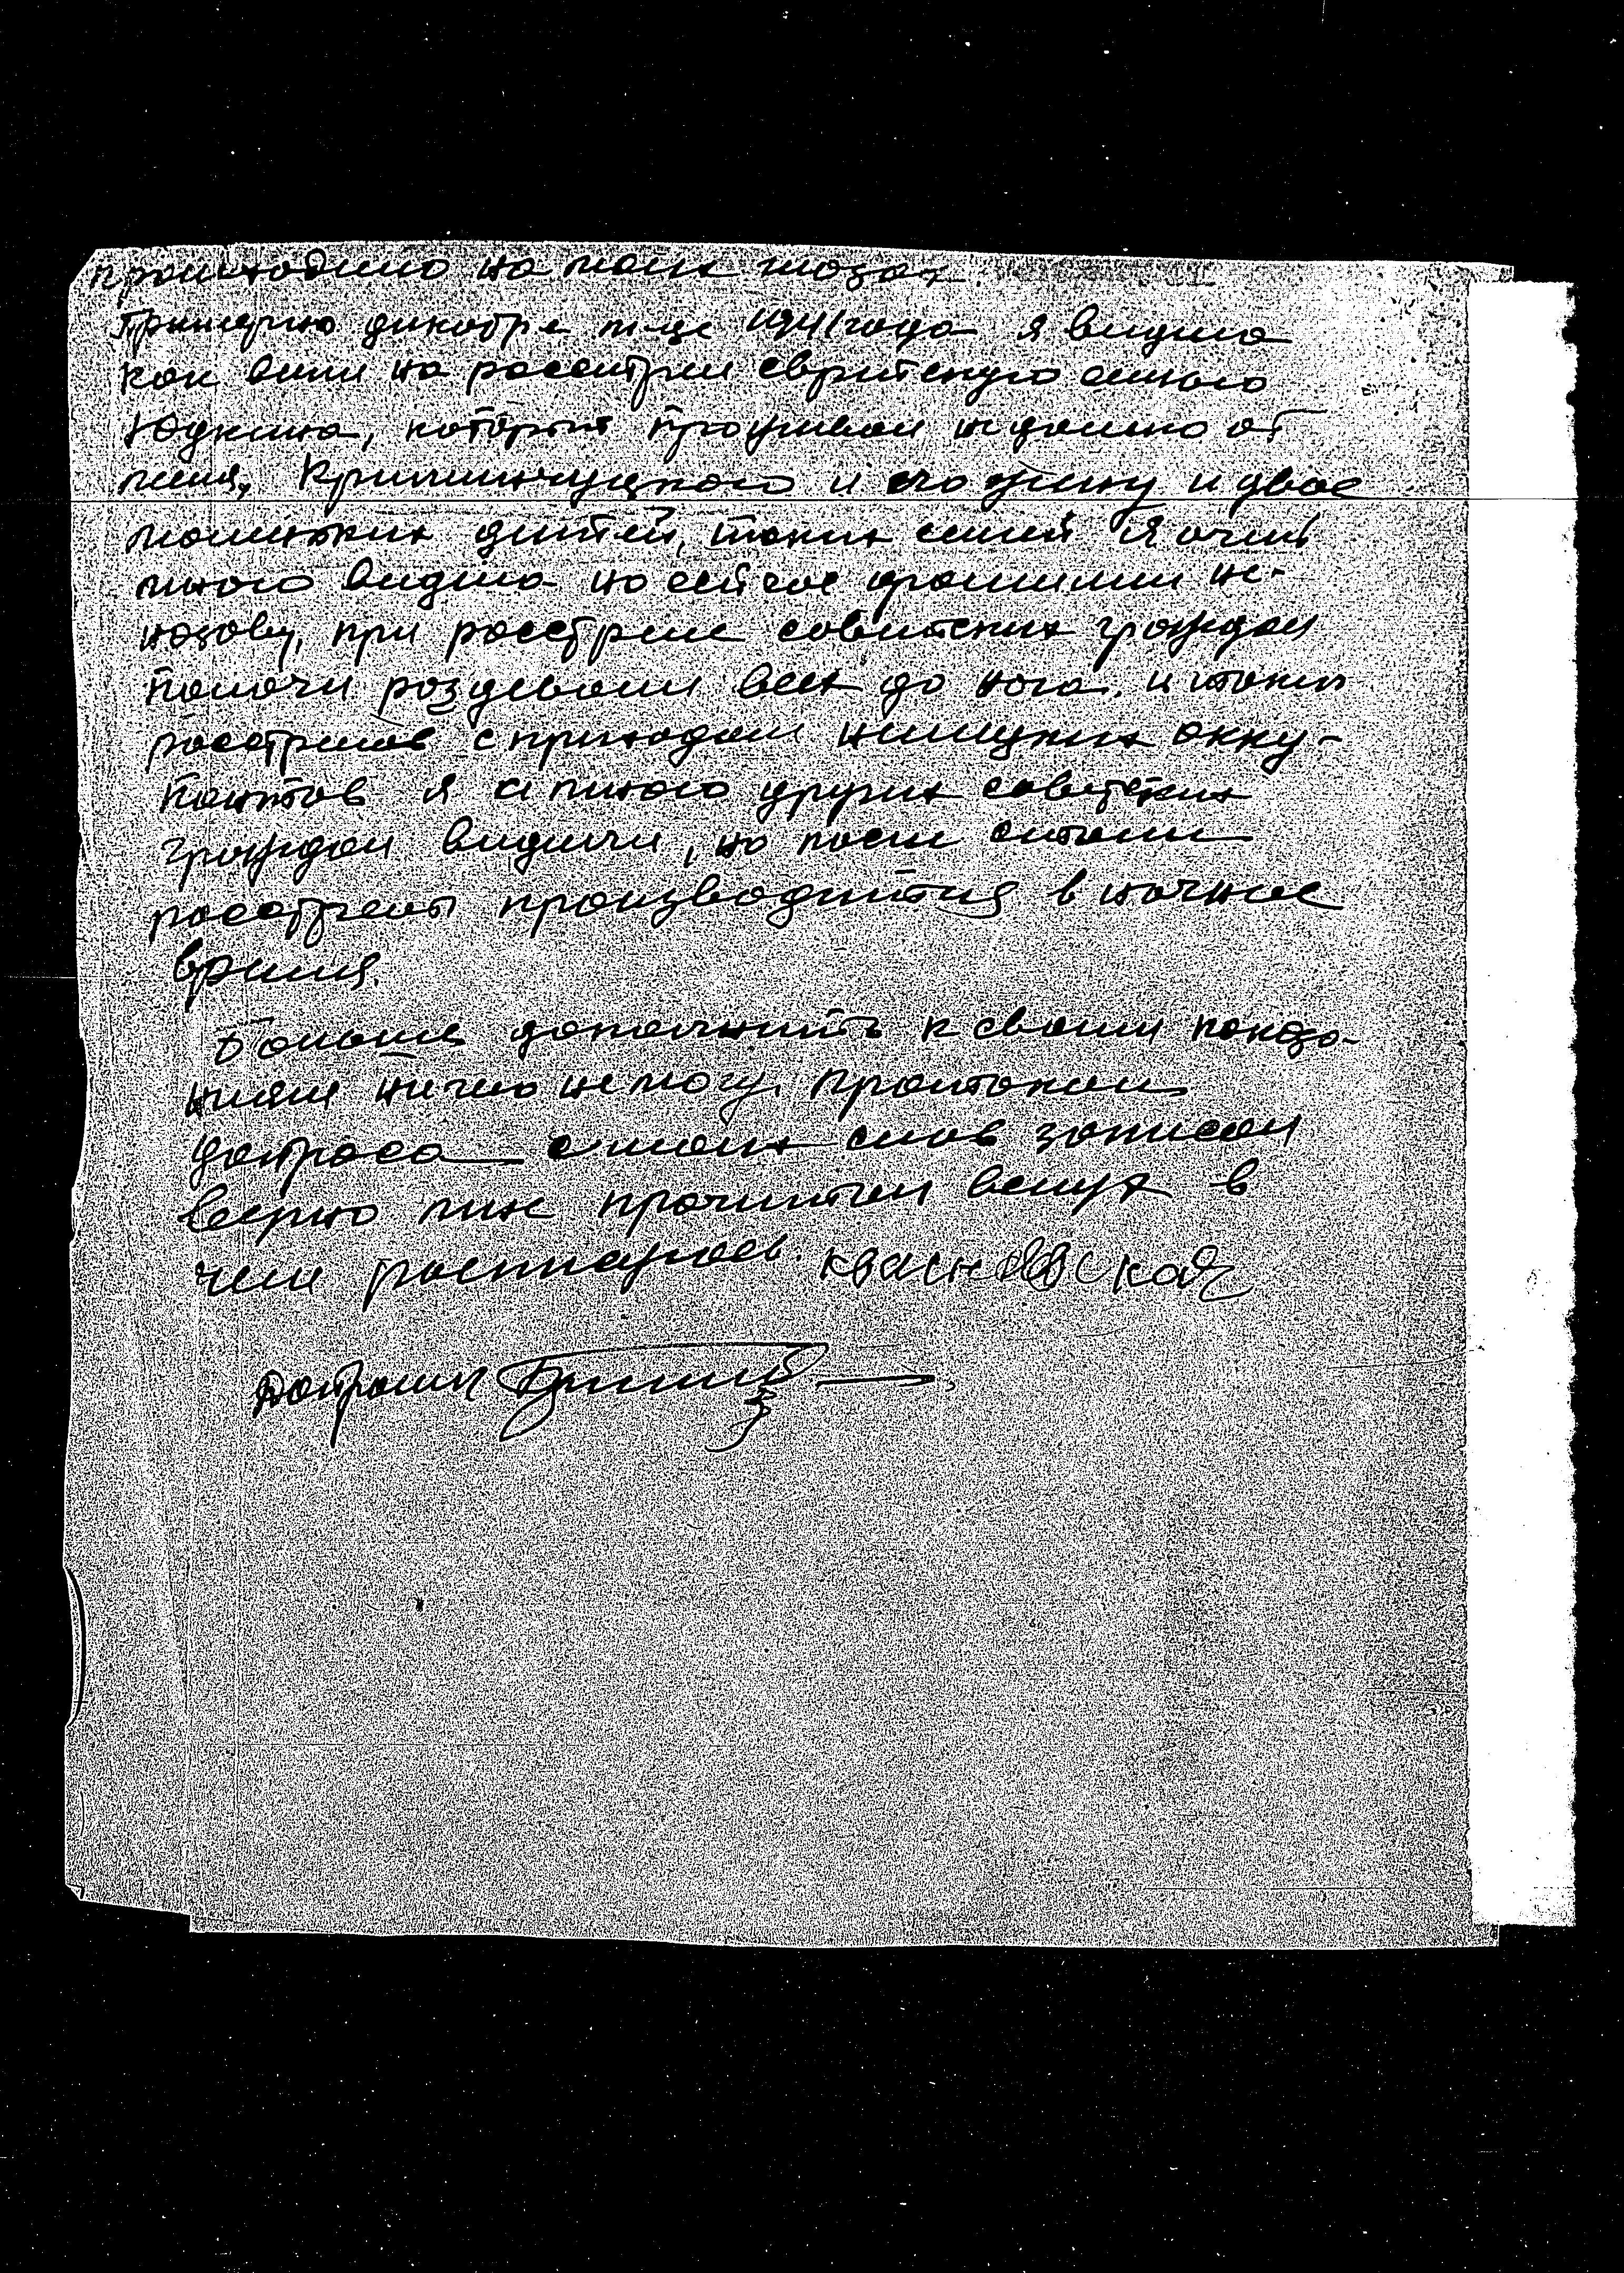 происходило на моих глозах.
Примерно декабре м-це 1941 года я видила
как вили на росстрел еврейскую семью
Юдкина, который проживал недалеко от
меня, Кременчуцкого и его жену и двое
малиньких дитей, таких семей я очень
много видила но сейчас фамилии не-
назову, при росстреле советских граждан
палачи роздевали всех до нога. и таких
росстрелов с приходом немецких окку-
пантов я и много других советских
граждан видили, но после стали
росстрелы производится в ночное
время.
Больше дополнить к своим показа-
ниям ничего не могу. Протокол
допроса с моих слов записан
веерно мне прочитан вслух в
чем росписуюсь. Квасновская
Допросил